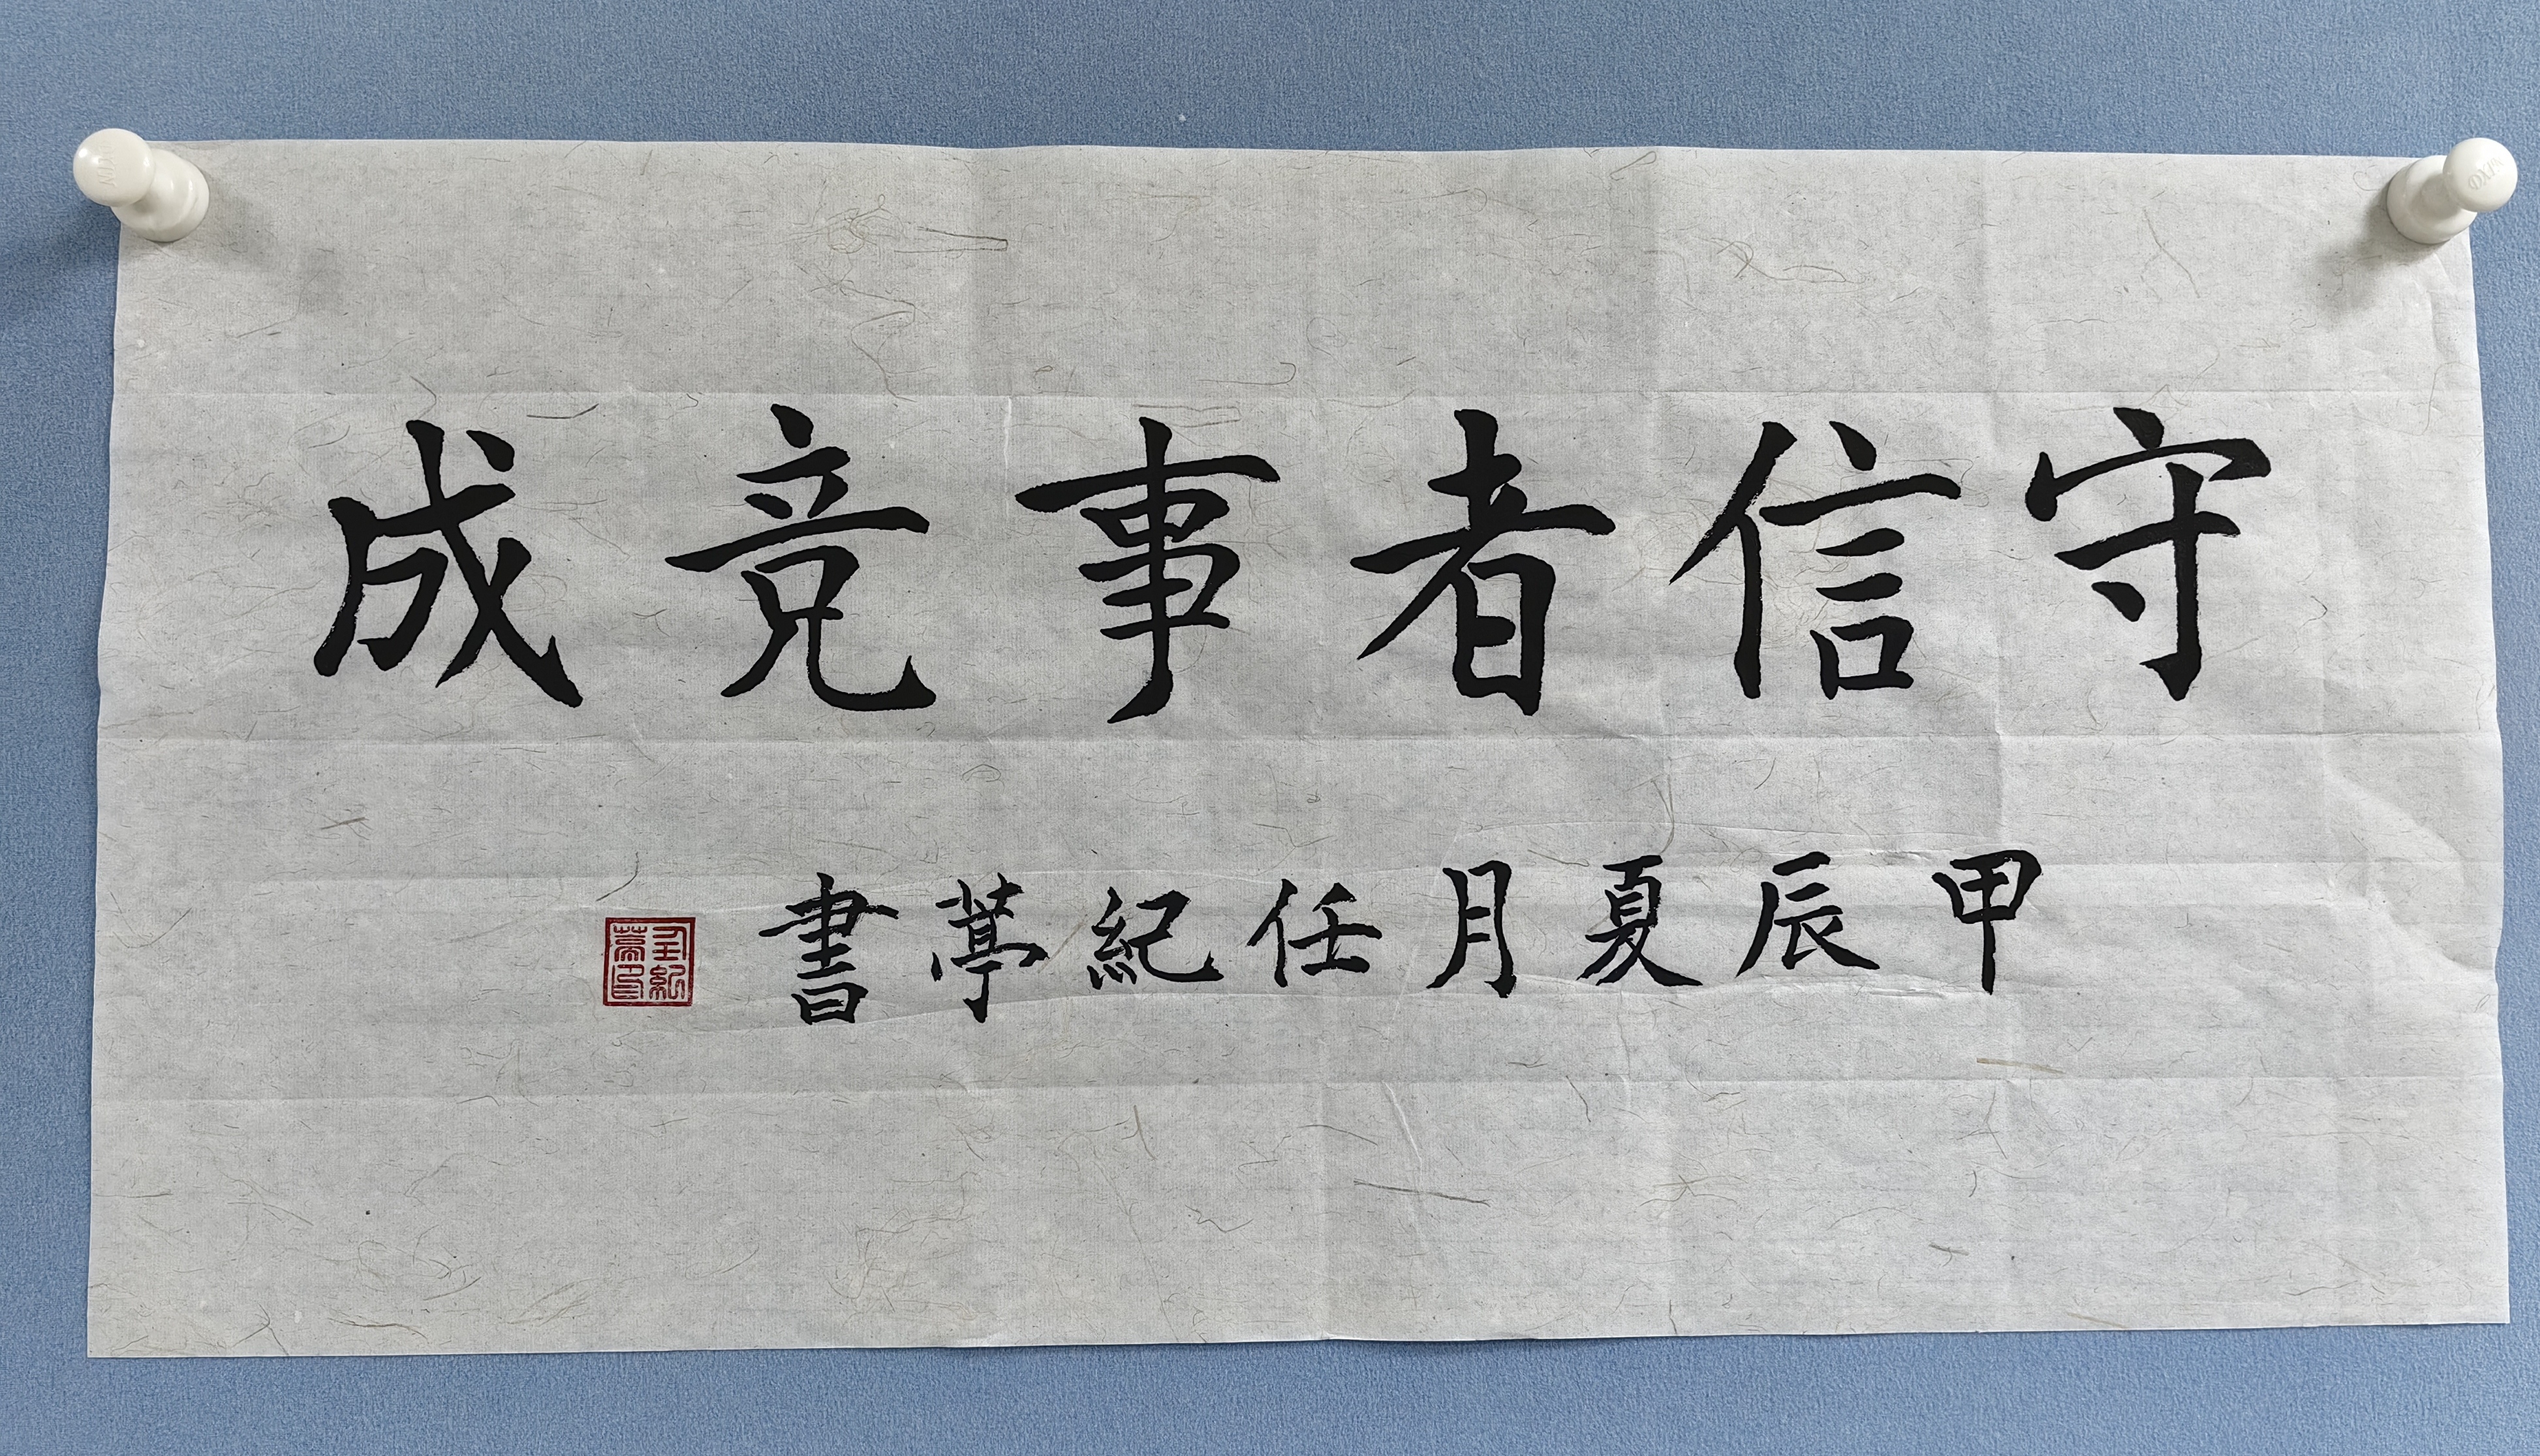 守信者事竞成
甲辰夏月任紀葶書
任紀葶印